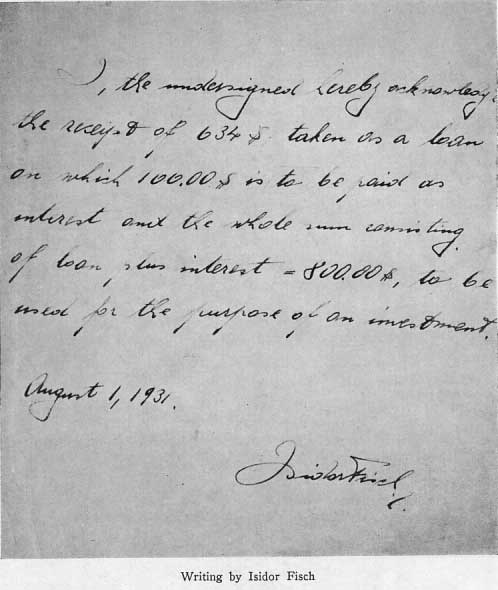 I, the undersigned hereby acknowledge
the receipt of 634 $ taken as a loan
on which 100.00 $ is to be paid as
interest and the whole sum consisting
of loan plus interest = 800.00 $, to be
used for the purpose of an investment.
August 1, 1931.
Isidor Fisch
Writing by Isidor Fisch